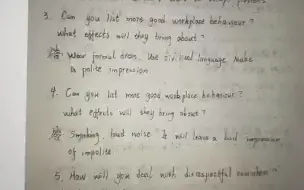 3. Can you list more good workplace behaviour?
what effects will they bring about?
答 Wear formal dress. Use civilized language. Make
a polite impression
4. Can you list more good workplace behaviour?
what effects will they bring about?
答 Smoking, loud noise It will leave a bad impression
of impolite
5. How will you deal with disrespectful